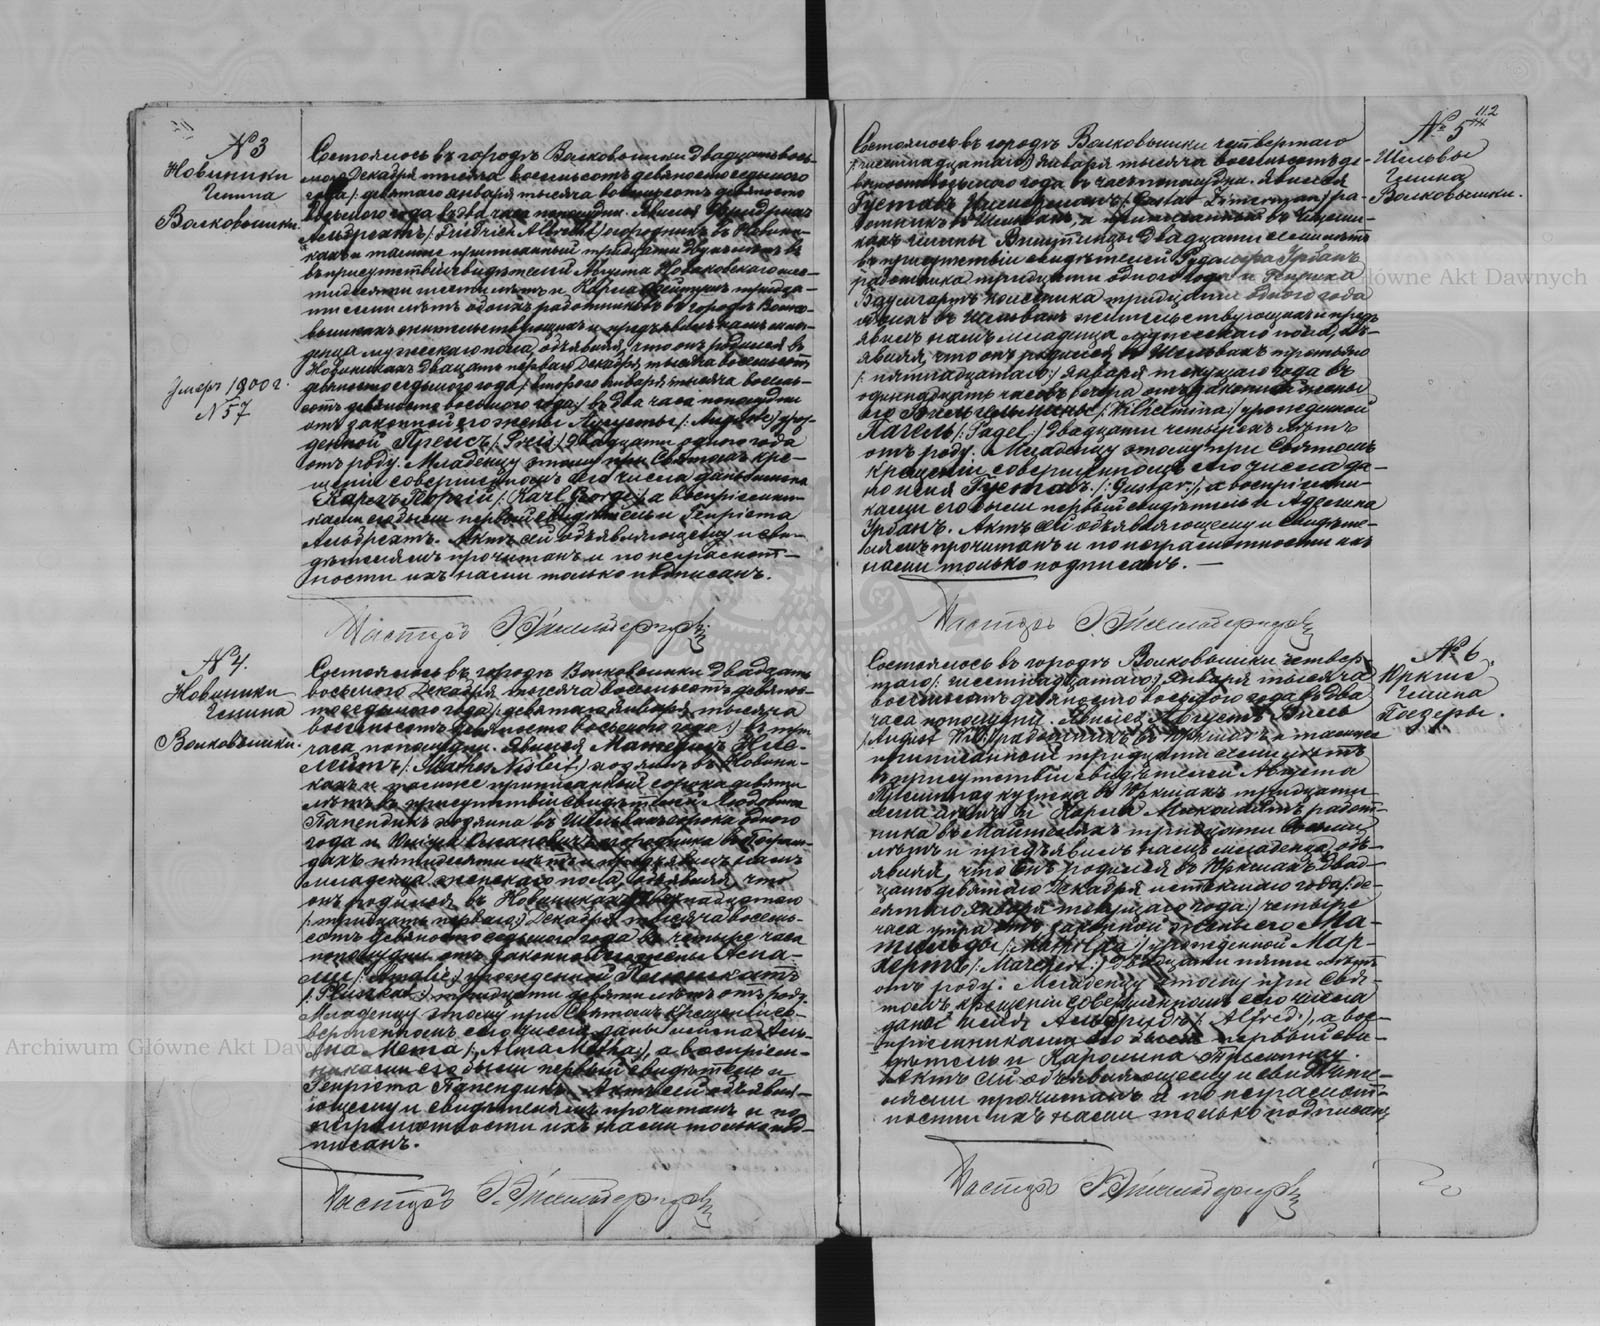 112
№ 3
Новиники
Гмина
Волковышки.
Умеръ 1900 г.
№ 57
Состоялось въ городѣ Волковышки двадцать вось-
маго Декабря тысяча восемьсотъ девяносто седьмаго
года /: девятаго января тысяча восемьсотъ девяносто
восьмаго года въ два часа пополудни. Явился Фридрихъ
Альбрехтъ /: Friedrich Albrecht:/ огородникъ въ Новини-
кахъ и тамже приписанный тридцати двухъ лѣтъ въ
въ присутствіи свидѣтелей Августа Новаковскаго шес-
тидесяти лѣтъ и Карла тридца-
ти семи лѣтъ обоихъ работниковъ въ городѣ Волко-
вышкахъ жительствующихъ и предъявилъ намъ мла-
денца мужескаго пола, объявляя, что онъ родился въ
Новиникахъ двадцать перваго Декабря тысяча восемьсотъ
девяносто седьмаго года /: втораго Января тысяча восемь-
сотъ девяносто восьмаго года:/ въ два часа пополудни
отъ законной его жены Августы /: Auguste:/ урож-
денной Прейсъ /: Preis:/ двадцати одного года
отъ роду. Младенцу этому при Святомъ кре-
щеніи совершенномъ сего числа даны имена
Карлъ Георгій /: Karl George:/ а воспріемни-
ками его были первый свидѣтель и Генріета
Альбрехтъ. Актъ сей объявляющему и сви-
дѣтелямъ прочитанъ и по неграмот-
ности ихъ нами только подписанъ.
Пасторъ
№ 4.
Новиники
Гмина
Волковышки.
Состоялось въ городѣ Волковышки двадцать
восьмого Декабря тысяча восемьсотъ девяно-
сто седьмаго года /: девятаго Января тысяча
восемьсотъ девяносто восьмаго года:/ въ три
часа пополудни. Явился
/: Mathes Nisleit:/ хозяинъ въ Новини-
кахъ и тамже приписанный сорока девяти
лѣтъ въ присутствіи свидѣтелей Людовика
Папендикъ хозяина въ Шельвахъ сорока одного
года и огородника въ
пятидесяти лѣтъ и предъявилъ намъ
младенца женскаго пола, объявляя, что
онъ родился въ Новиникахъ девятнадцатаго
/: тридцать перваго:/ Декабря тысяча восемь-
сотъ девяносто седьмаго года въ четыре часа
пополудни отъ законной его жены Ама-
ліи /: Amalie:/ урожденной Плюшкатъ
/: Pluszkat:/ тридцати девяти лѣтъ отъ роду.
Младенцу этому при Святомъ Крещеніи со-
вершенномъ сего числа даны имена Аль-
ма Мета /: Alma Metha:/, а воспріем-
никами его были первый свидѣтель и
Генріета Папендикъ. Актъ сей объявля-
ющему и свидѣтелямъ прочитанъ и по
неграмотности ихъ нами только под-
писанъ.
Пасторъ
№ 5
Шельвы
Гмина
Волковышки.
Состоялось въ городѣ Волковышки четвертаго
/: шестнадцатаго:/ Января тысяча восемьсотъ де-
вяносто восьмого года въ часъ пополудни. Явился
Густавъ Циммерманъ /: Gustav Zimerman:/ ра-
ботникъ въ Шельвахъ, а приписанный въ
гмины двадцати семи лѣтъ
въ присутствіи свидѣтелей Рудольфа Урбанъ
работника тридцати одного года и Генриха
Баумгартъ тридцати одного года
обоихъ въ Шельвахъ жительствующихъ и предъ-
явилъ намъ младенца мужескаго пола, объ-
являя, что онъ родился въ Шельвахъ третьяго
/: пятнадцатаго:/ Января текущаго года въ
одинадцать часовъ вечера отъ законной жены
его Вильгельмины /: Wilhelmina:/ урожденной
Пагель /: Pagel:/ двадцати четырехъ лѣтъ
отъ роду. Младенцу этому при Святомъ
Крещеніи совершенномъ сего числа да-
но имя Густавъ. /: Gustav:/, а воспріемни-
ками его были первый свидѣтель и
Урбанъ. Актъ сей объявляющему и свидѣте-
лямъ прочитанъ и по неграмотности ихъ
нами только подписанъ. —
Пасторъ
№ 6.
Гмина
Состоялось въ городѣ Волковышки четвер-
таго /: шестнадцатаго:/ Января тысяча
восемьсотъ девяносто восьмого года въ два
часа пополудни. Явился Августъ
/: August работникъ въ и тамже
приписанный тридцати семи лѣтъ
въ присутствіи свидѣтелей Августа
кузнеца въ тридцати
и Карла работ-
ника въ тридцати восьми
лѣтъ и предъявилъ намъ младенца, объ-
являя, что онъ родился въ двад-
цать девятаго Декабря истекшаго года /: де-
сятаго Января текущаго года:/ четыре
часа утра отъ законной жены его Ма-
тильды /: Mathilda:/ урожденной Мар-
хертъ /: Marchert:/ двадцати пяти лѣтъ
отъ роду. Младенцу этому при Свя-
томъ крещеніи совершенномъ сего числа
дано имя Альфридъ /: Alfred:/, а вос-
пріемниками его были первый сви-
дѣтель и Каролина
Актъ сей объявляющему и свидѣте-
лямъ прочитанъ и по неграмот-
ности ихъ нами только подписанъ
Пасторъ
Archiwum Główne Akt Dawnych
Główne Akt Dawnych